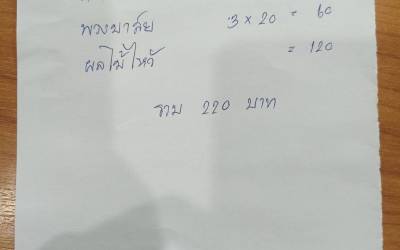 พวงมาลัย 3 x 20 = 60
ผลไม้ไหว้ = 120
รวม 220 บาท